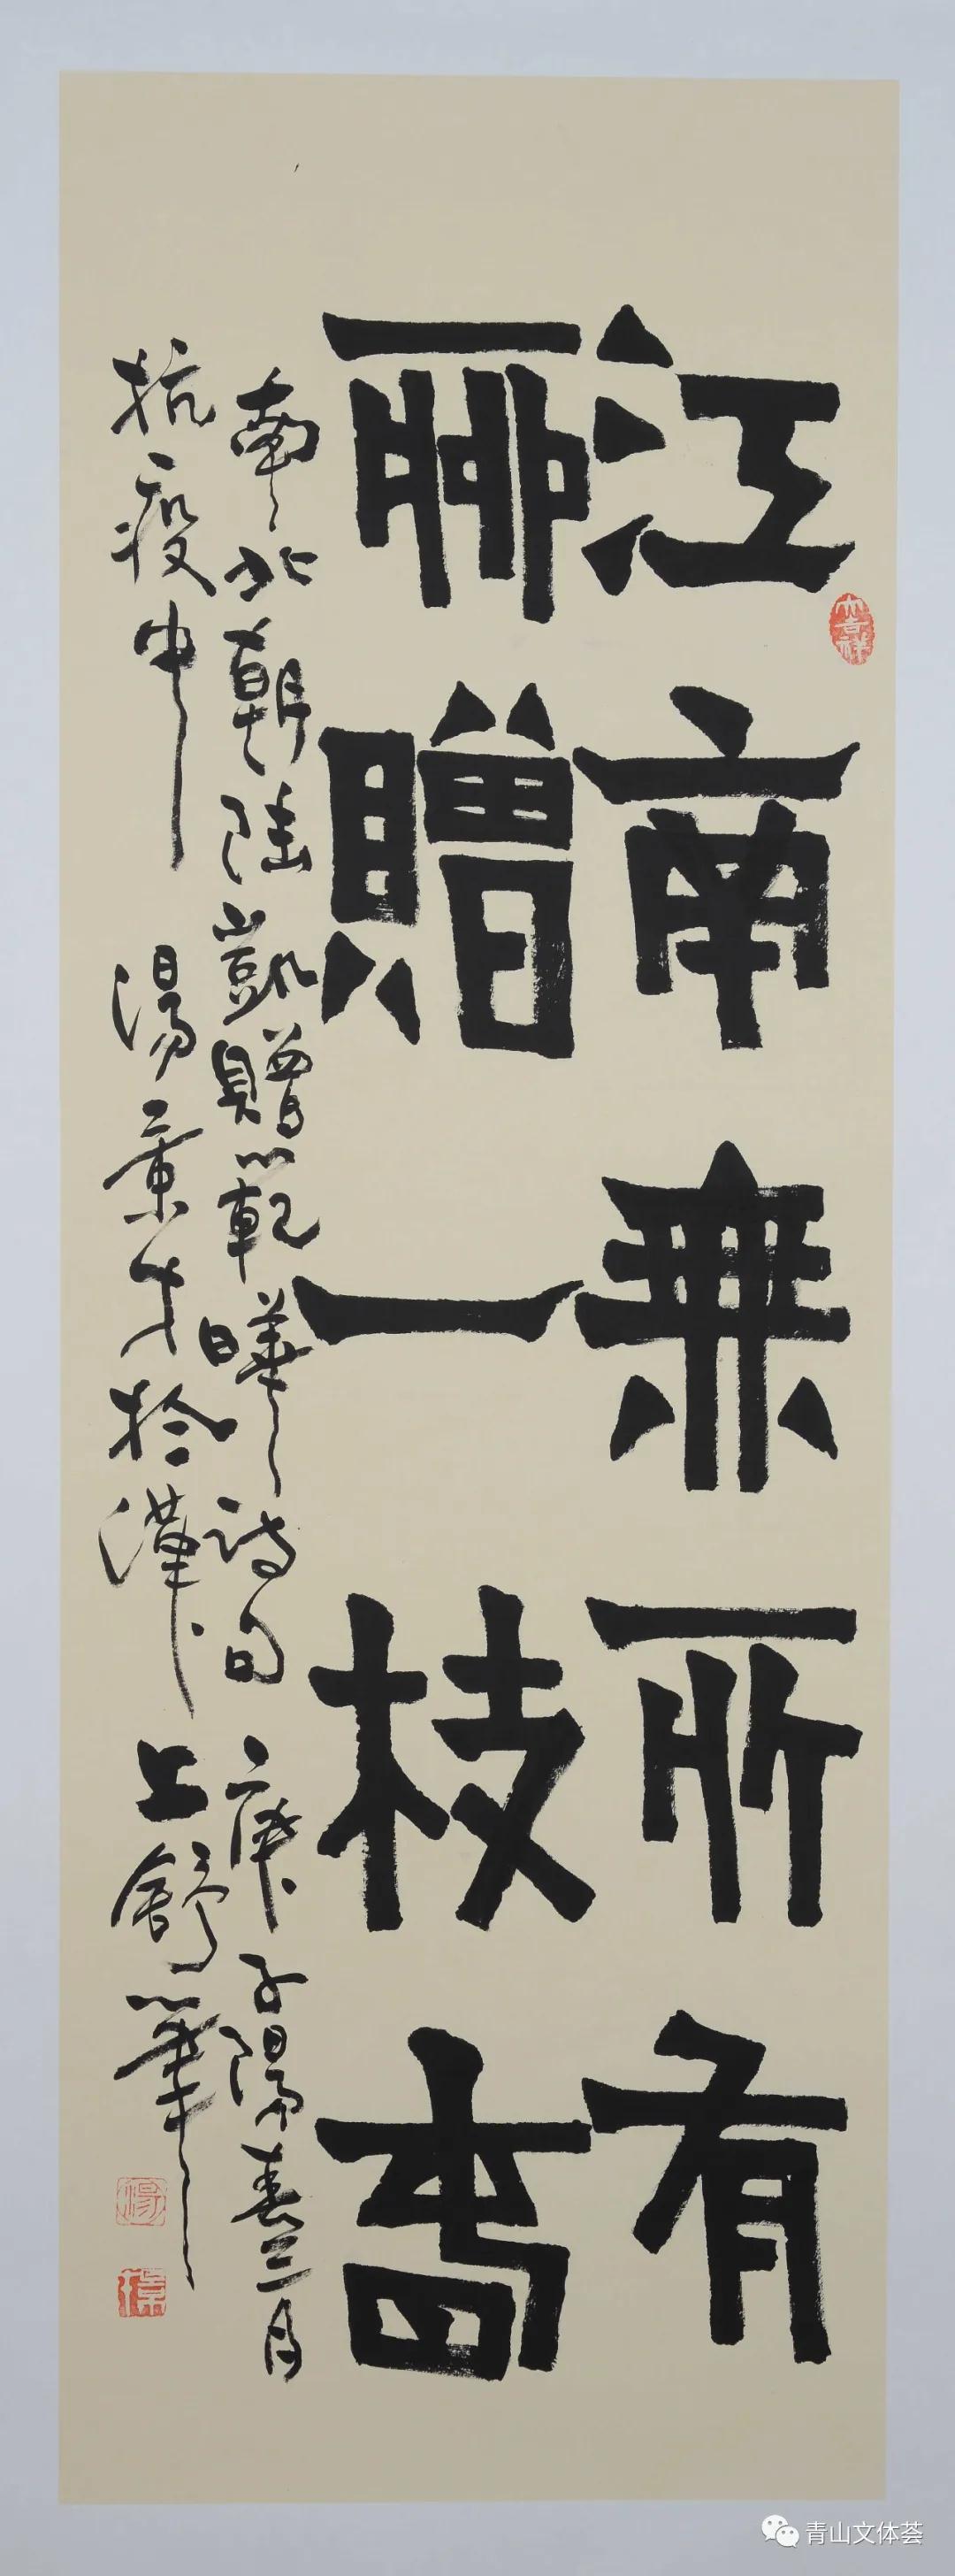 江南無所有
聊贈一枝春
南北朝陸凱贈範曄詩句 庚子陽春三月
抗疫中 湯 於漢上舒筆
大吉祥
湯
青山文体荟